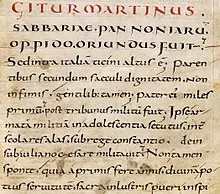 GITUR MARTINUS
SABBARIAE · PANNONIARU
OPPIDO, ORIUNDUS FUIT
Sed intra italia ticini altus e; Paren
tibus secundum saeculi dignitatem non
infimis, gentilib; tamen; pater ei miles
primu, post tribunus militu fuit, Ipse ar
mata militia in adolescentia secutus, int
scolares alas, sub rege constantio,
sub iuliano esare militavit; Non tamen
sponte, quia a primis fere annis, divina
tius servitute, sacra inlustris pueri inspi